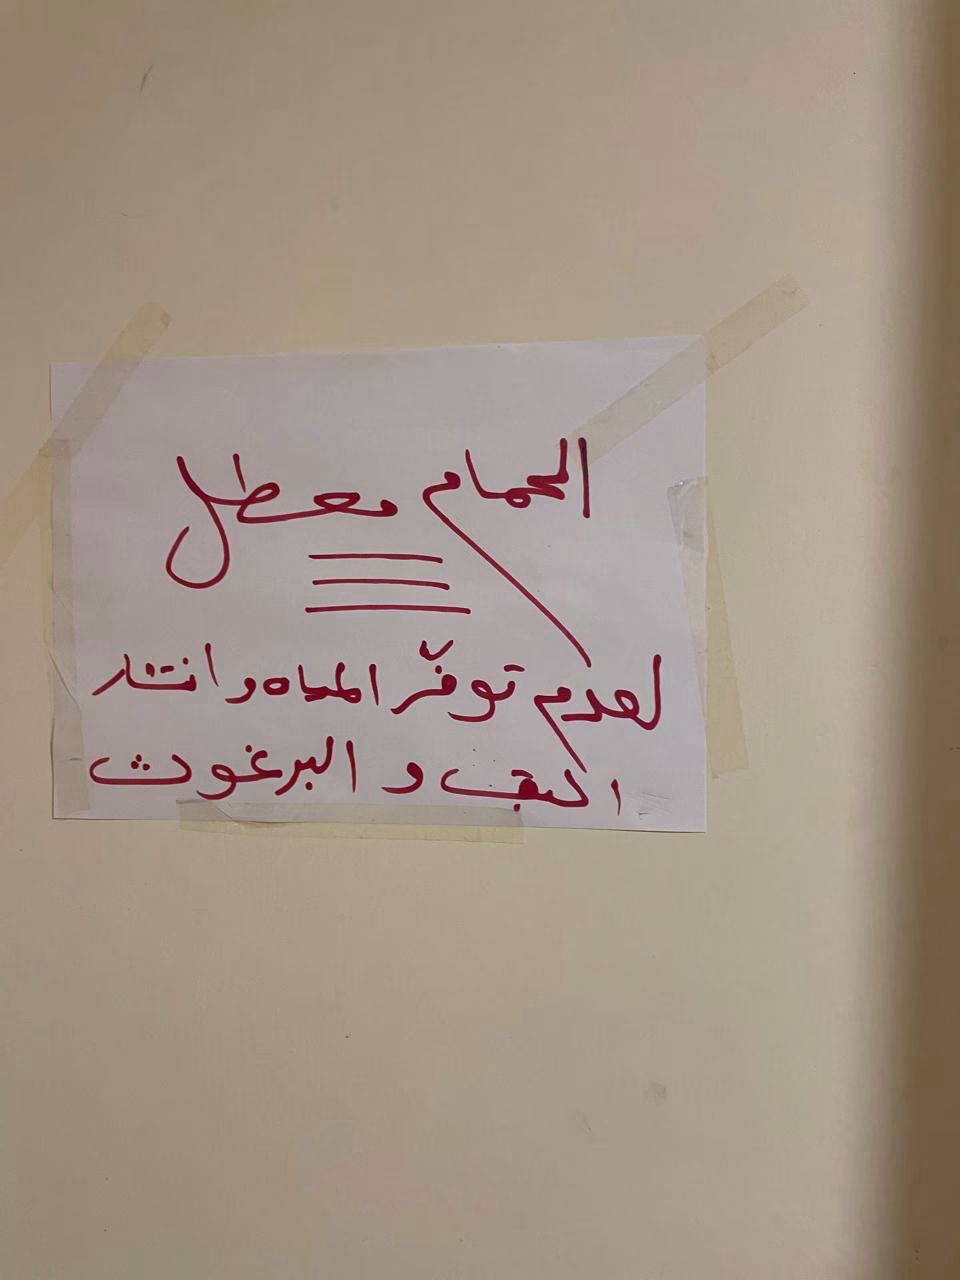 الحمام معطل
لعدم توفّر المياه و انتشار
البق و البرغوث